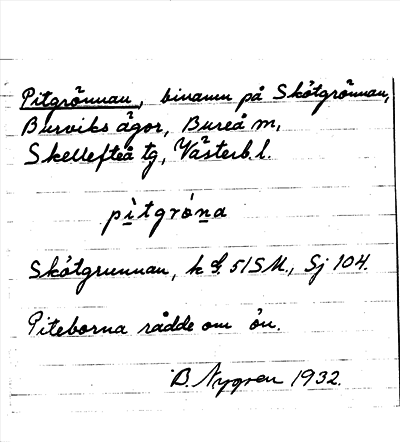 Pitgrönnan, binamn på Skötgrönnan,
Burviks ägor, Bureå m,
Skellefteå tg, Västerb. l.
pìtgróna
Skötgrunnan, k 51SM., Sj 104.
Piteborna rådde om ön.
B. Nygren 1932.